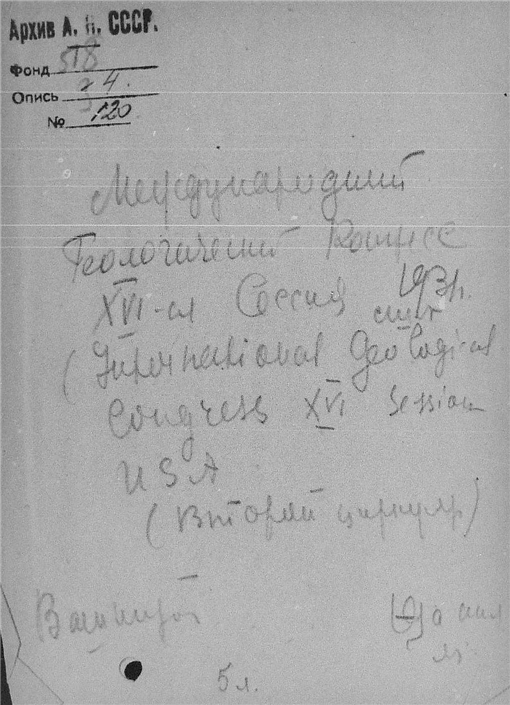 Архив А. Н. СССР.
Фонд 518
Опись 4.
№ 120
Международный
Геологический Конгресс
XVI-ая Сессия 1931.
(International Geological
Congress XVI Session
USA
(Второй циркуляр)
Вашингтон
На англ
5 л.